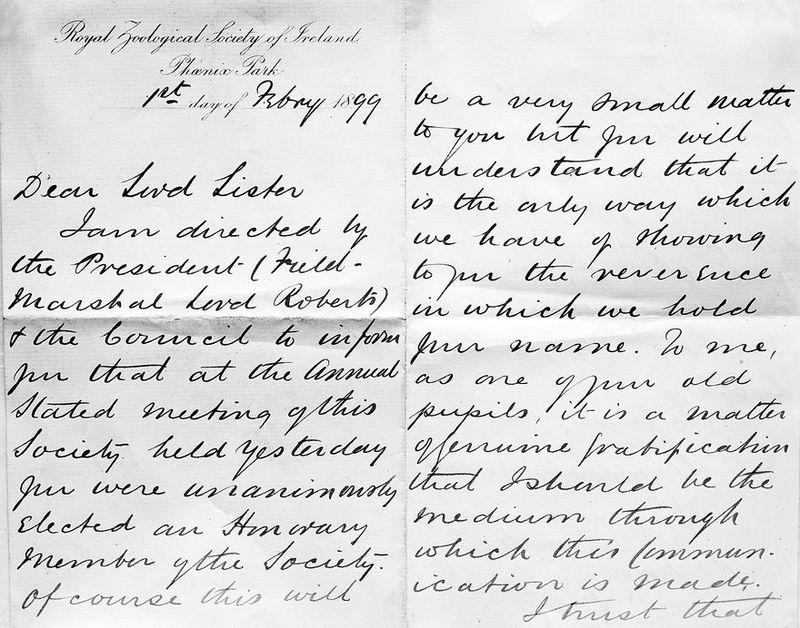 Royal Zoological Society of Ireland,
Phœnix Park
1st day of Febry 1899
Dear Lord Lister
I am directed by
the President (Field-
Marshal Lord Roberts)
& the Council to inform
you that at the Annual
Stated meeting of this
Society held yesterday
you were unanimously
Elected an Honorary
Member of the Society.
Of course this will
be a very small matter
to you but you will
understand that it
is the only way which
we have of showing
to you the reverence
in which we hold
your name. To me,
as one of your old
pupils, it is a matter
of genuine gratification
that I should be the
medium through
which this Commun-
ication is made.
I trust that